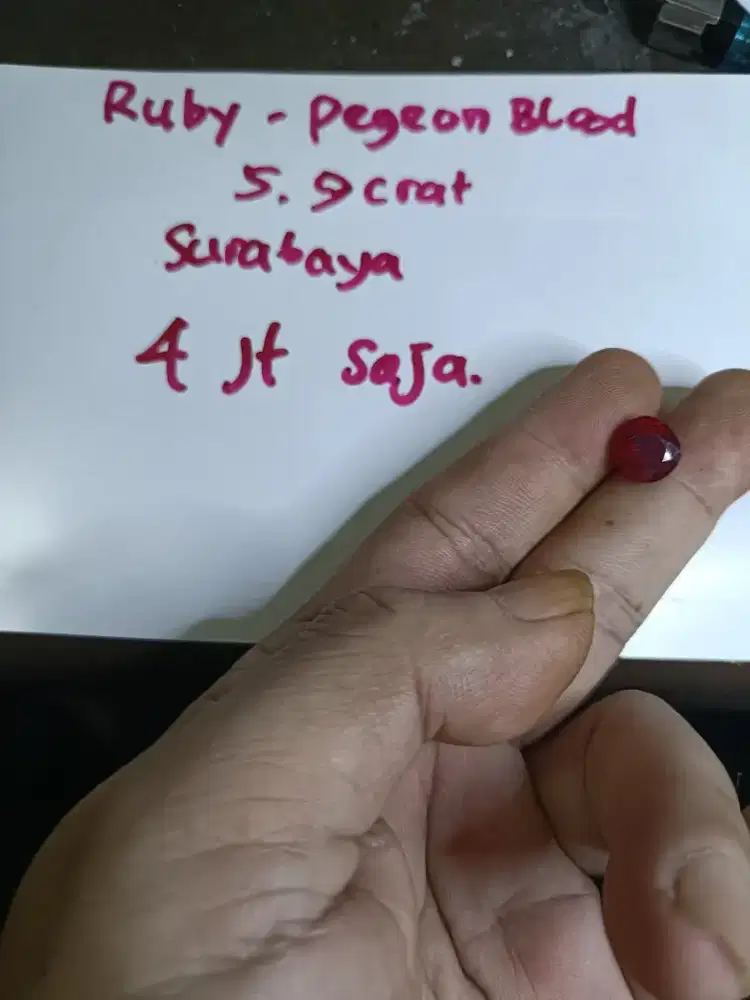 Ruby - Pegeon Blood
5.9 crat
Surabaya
4 Jt Saja.